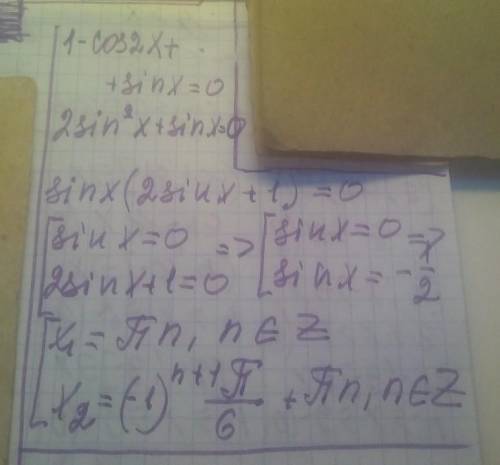 1-cos2x+
+sinx=0
2sin²x+sinx=0
sinx(2sinx+1)=0
[sinx=0 => [sinx=0 =>
[2sinx+1=0 [sinx=-1/2
[x₁=πn, n∈Z
[x₂=(-1)ⁿ⁺¹ π/6 +πn, n∈Z